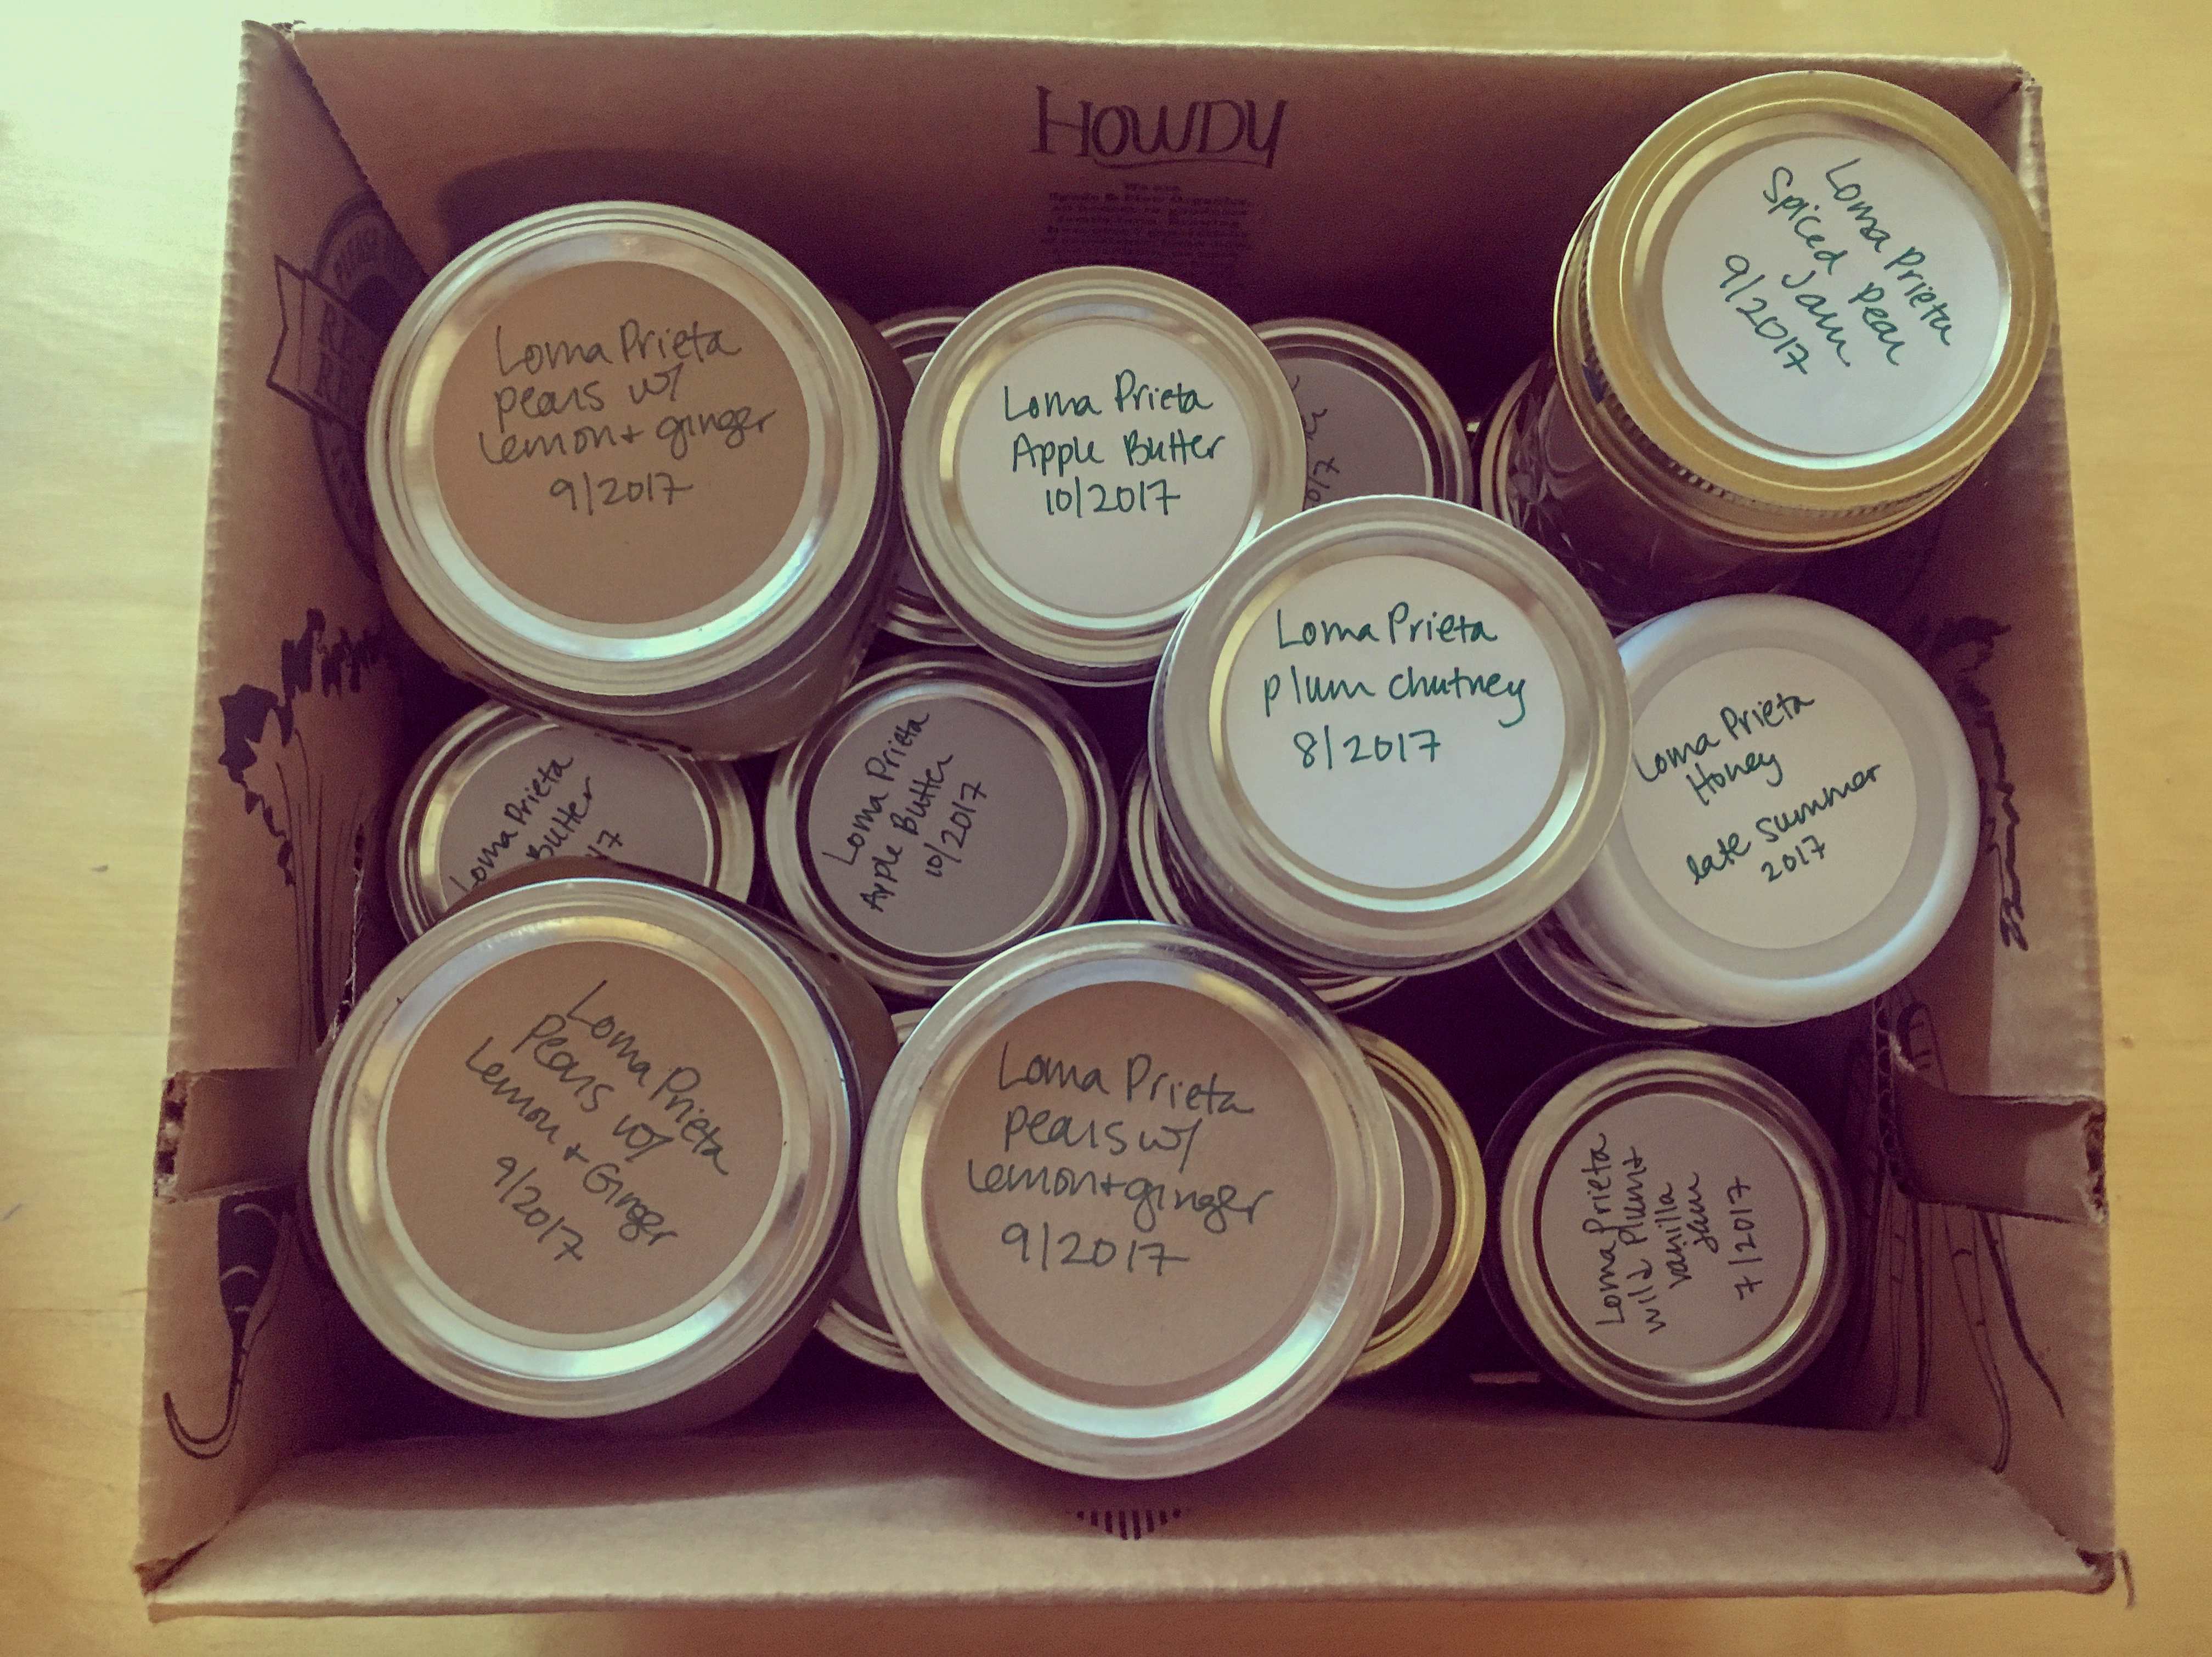 HOWDY
We are
Loma Prieta
Spiced Pear
Jam
9/2017
Loma Prieta
pears w/
Lemon + ginger
9/2017
Loma Prieta
Apple Butter
10/2017
Loma Prieta
plum chutney
8/2017
Loma Prieta
Honey
late summer
2017
Loma Prieta
Butter
Loma Prieta
Apple Butter
10/2017
Loma Prieta
Pears w/
Lemon + Ginger
9/2017
Loma Prieta
pears w/
Lemon + ginger
9/2017
Loma Prieta
wild plum +
vanilla
Jam
7/2017